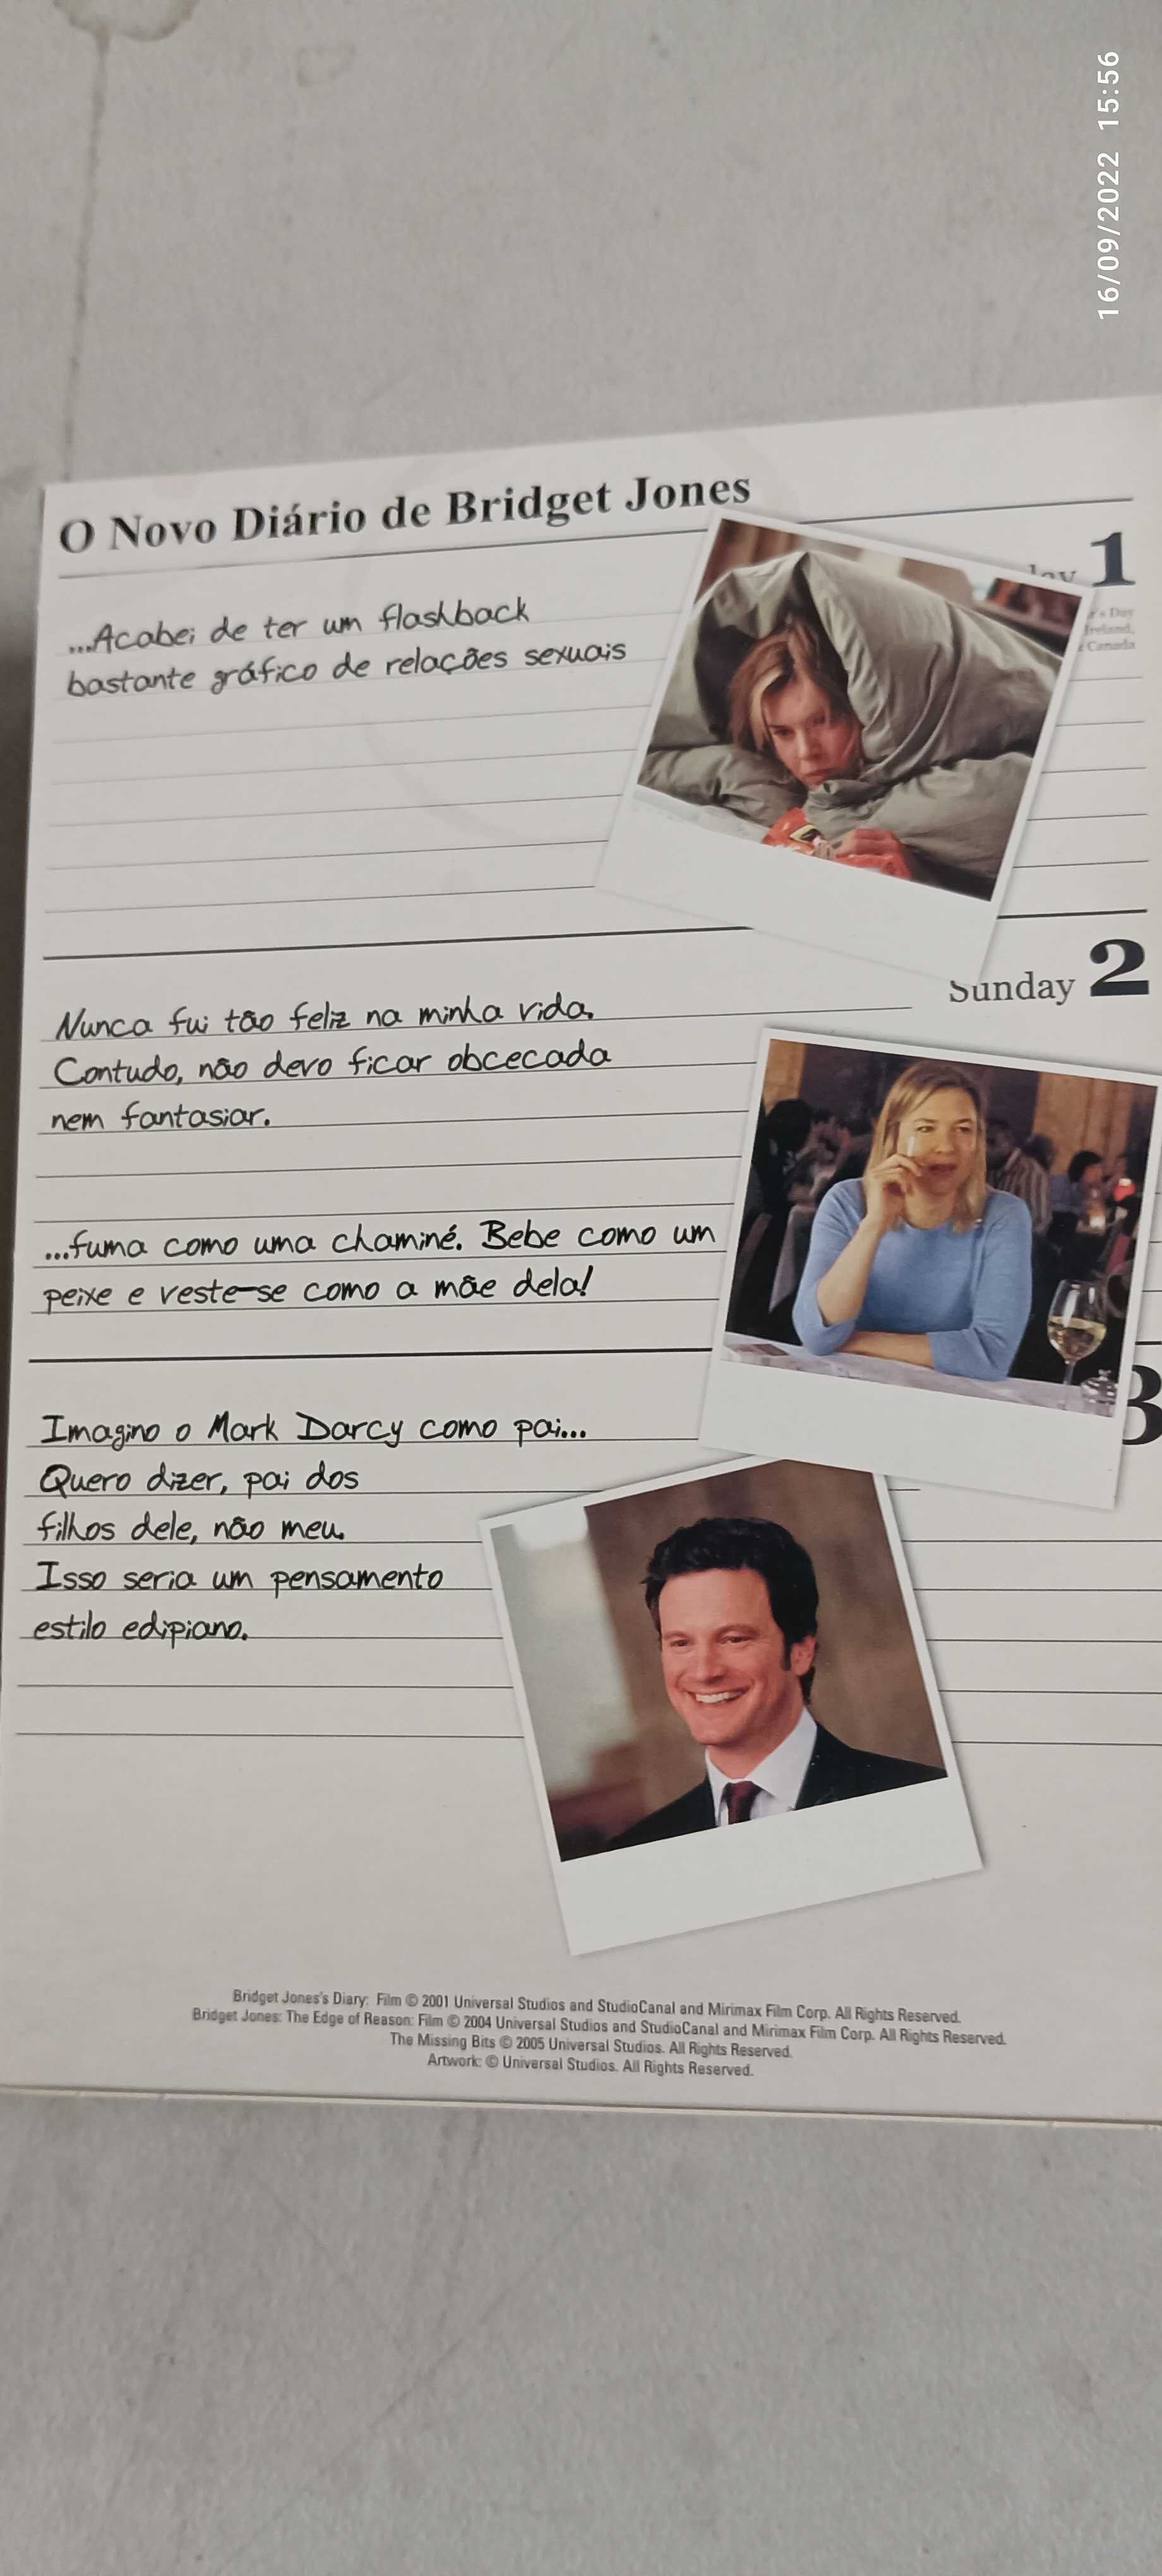 16/09/2022 15:56
O Novo Diário de Bridget Jones
1
...Acabei de ter um flashback
bastante gráfico de relações sexuais
Ireland,
Canada
Sunday 2
Nunca fui tão feliz na minha vida.
Contudo, não devo ficar obcecada
nem fantasiar.
...fuma como uma chaminé. Bebe como um
peixe e veste-se como a mãe dela!
3
Imagino o Mark Darcy como pai...
Quero dizer, pai dos
filhos dele, não meu.
Isso seria um pensamento
estilo edipiano.
Bridget Jones's Diary: Film © 2001 Universal Studios and StudioCanal and Mirimax Film Corp. All Rights Reserved.
Bridget Jones: The Edge of Reason: Film © 2004 Universal Studios and StudioCanal and Mirimax Film Corp. All Rights Reserved.
The Missing Bits © 2005 Universal Studios. All Rights Reserved.
Artwork: © Universal Studios. All Rights Reserved.